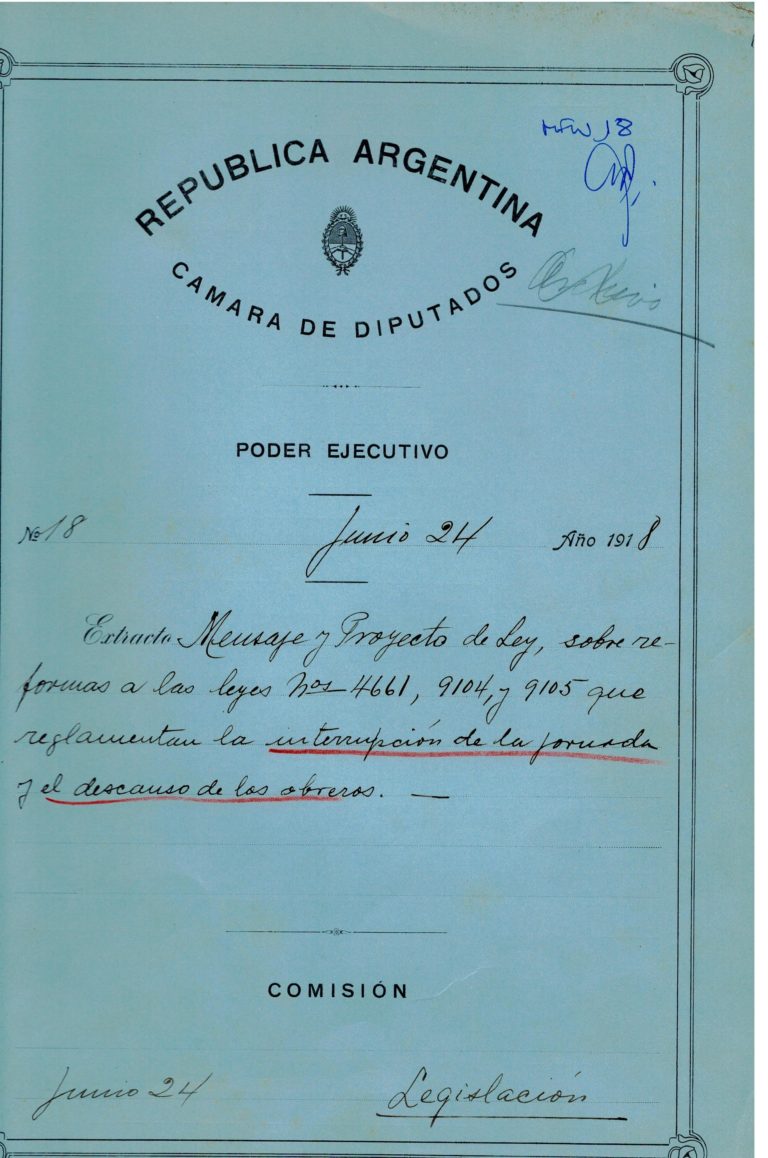 18
REPUBLICA ARGENTINA
CAMARA DE DIPUTADOS
Archivo
PODER EJECUTIVO
Nº 18 Junio 24 Año 1918
Extracto Mensaje y Proyecto de Ley, sobre re-
formas a las leyes Nos 4661, 9104, y 9105 que
reglamentan la interrupción de la jornada
y el descanso de los obreros. —
COMISIÓN
Junio 24 Legislación